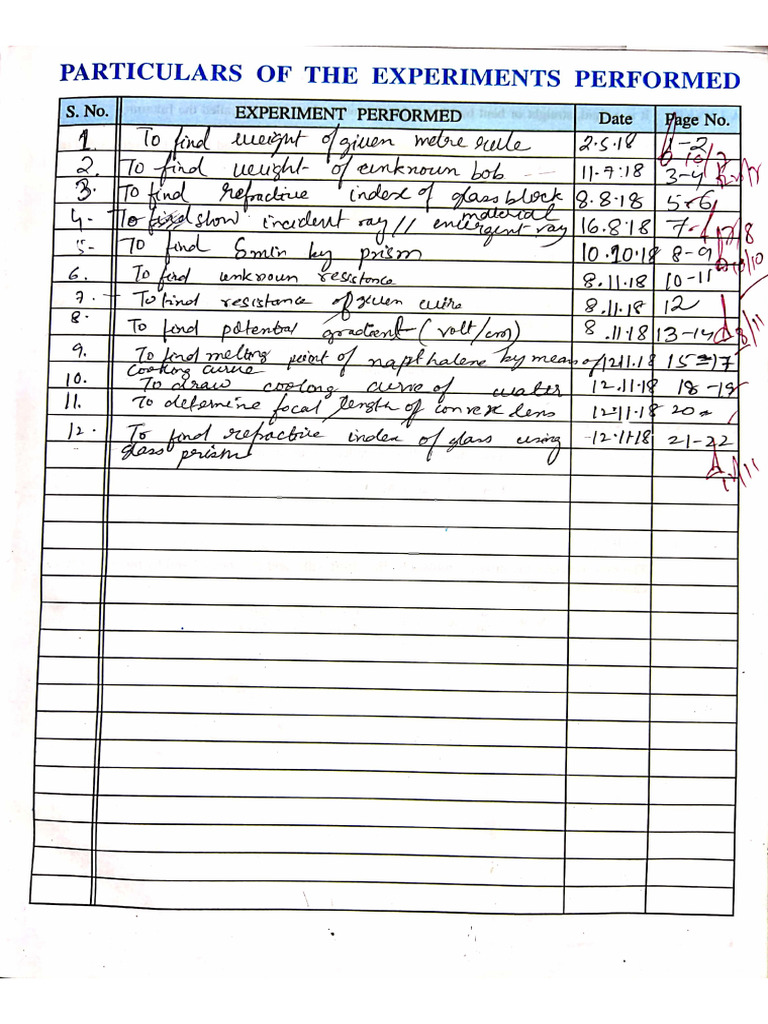 PARTICULARS OF THE EXPERIMENTS PERFORMED
S. No. EXPERIMENT PERFORMED Date Page No.
1. To find weight of given metre rule 2.5.18 1-2
2. To find weight of unknown bob 11.7.18 3-4
3. To find refractive index of glass block 8.8.18 5-6
material
4. To find show incident ray // emergent ray 16.8.18 7
5. To find δmin by prism 10.10.18 8-9
6. To find unknown resistance 8.11.18 10-11
7. To find resistance of given wire 8.11.18 12
8. To find potential gradient (volt/cm) 8.11.18 13-14
9. To find melting point of napthalene by means of 12.11.18 15-17
cooling curve
10. To draw cooling curve of water 12.11.18 18-19
11. To determine focal length of convex lens 12.11.18 20
12. To find refractive index of glass using 12.11.18 21-22
glass prism